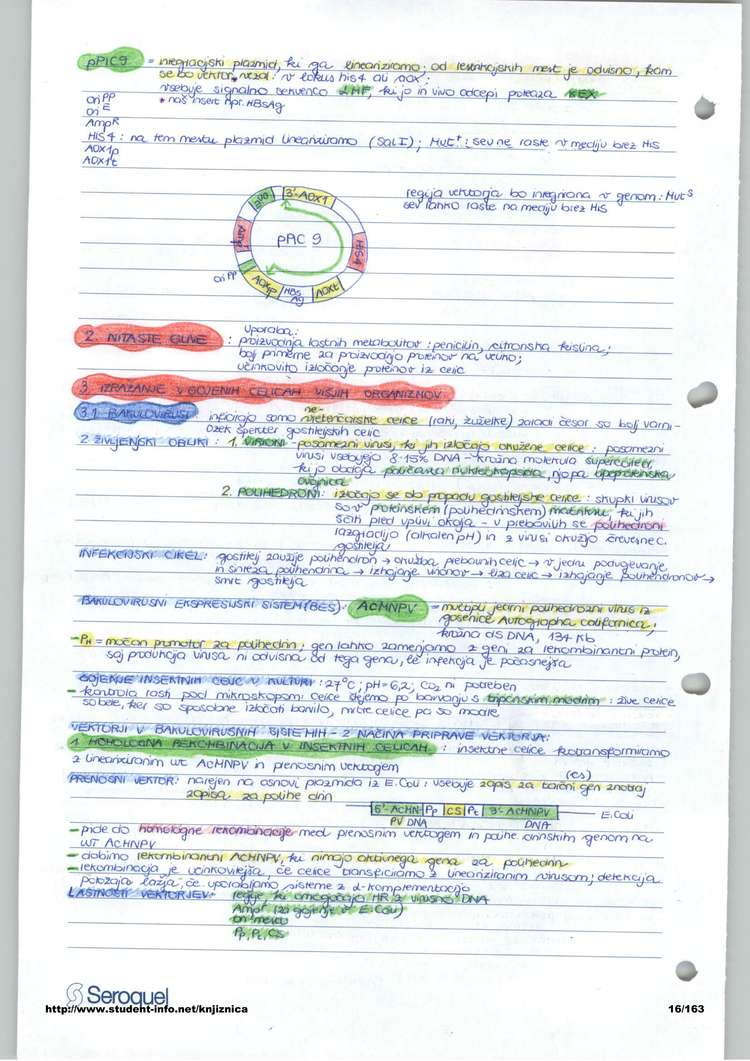 pPIC9 = integracijski plazmid, ki ga lineariziramo; od restrikcijskih mest je odvisno, kam
se bo vektor* vezal: v lokus his4 ali AOX;
vsebuje signalno sekvenco LHF, ki jo in vivo odcepi proteaza KEX
ori PP * naš insert npr. HBsAg
ori E
AmpR
HIS4: na tem mestu plazmid lineariziramo (SalI); Mut+: sev ne raste v mediju brez His
AOX1p
AOX1t
3'-AOX1
regija vektorja bo integrirana v genom: MutS
sev lahko raste na mediju brez His
pPIC 9
AmpR
HIS4
ori PP
AOXp
HBsAg
AOXt
2. NITASTE GLIVE : Uporaba:
proizvodnja lastnih metabolitov: penicilin, citronska kislina;
bolj primerne za proizvodnjo proteinov na veliko;
učinkovito izločanje proteinov iz celic
3. IZRAŽANJE V GOJENIH CELICAH VIŠJIH ORGANIZMOV
3.1. BAKULOVIRUSI inficirajo samo nevretenčarske celice (raki, žuželke) zaradi česar so bolj varni -
ozek špekter gostiteljskih celic
2 ŽIVLJENJSKI OBLIKI: 1. VIRIONI - posamezni virusi, ki jih izločajo okužene celice: posamezni
virusi vsebujejo 8-15% DNA - krožno molekula supercoiled,
ki jo obdaja paličasta nukleokapsida, njo pa lipoproteinska
ovojnica
2. POLIHEDRONI: izločajo se ob propadu gostiteljske celice: skupki virusov
so v proteinskem (polihedrinskem) matriksu, ki jih
ščiti pred vplivi okolja - v prebavilih se polihedroni
razgradijo (alkalen pH) in z virusi okužijo črevesne c.
gostitelja
INFEKCIJSKI CIKEL: gostitelj zaužije polihendron → okužba prebavnih celic → v jedru podvojevanje
in sinteza polihendrina → izhajanje virionov → liza celic → izhajanje polihendronov →
smrt gostitelja
BAKULOVIRUSNI EKSPRESIJSKI SISTEM (BES): AcMNPV = multipli jedrni polihedrozni virus iz
gosenice Autographa californica;
krožna ds DNA, 134 kb
- PH = močan promotor za polihedrin; gen lahko zamenjamo z geni za rekombinantni protein,
saj produkcija virusa ni odvisna od tega gena, le infekcija je počasnejša
GOJENJE INSEKTNIH CELIC V KULTURI: 27°C; pH=6,2; CO2 ni potreben
- kontrola rasti pod mikroskopom: celice štejemo po barvanju s tripanskim modrim: žive celice
so bele, ker so sposobne izločati barvilo, mrtve celice pa so modre
VEKTORJI V BAKULOVIRUSNIH SISTEMIH - 2 NAČINA PRIPRAVE VEKTORJA:
1. HOMOLOGNA REKOMBINACIJA V INSEKTNIH CELICAH: insektne celice kotransformiramo
z lineariziranim wt AcMNPV in prenosnim vektorjem
PRENOSNI VEKTOR: narejen na osnovi plazmida iz E. Coli: vsebuje zapis za tarčni gen znotraj (CS)
zapisa za polihe drin
5'-ACHN PP CS PL 3'-ACHNPV E. Coli
PV DNA DNA
- pride do homologne rekombinacije med prenosnim vektorjem in polihe drinskim genom na
WT AcMNPV
- dobimo rekombinantni AcMNPV, ki nimajo okvirnega gena za polihedrin
- rekombinacija je učinkovitejša, če celice transfeciramo z lineariziranim virusom; detekcija
položaja lažja, če uporabljamo sisteme z α-komplementacijo
LASTNOSTI VEKTORJEV: regije, ki omogočajo HR z virusno DNA
AmpR (za gojenje v E. Coli)
ori mesto
PP, PL, CS
Seroquel
http://www.student-info.net/knjiznica 16/163